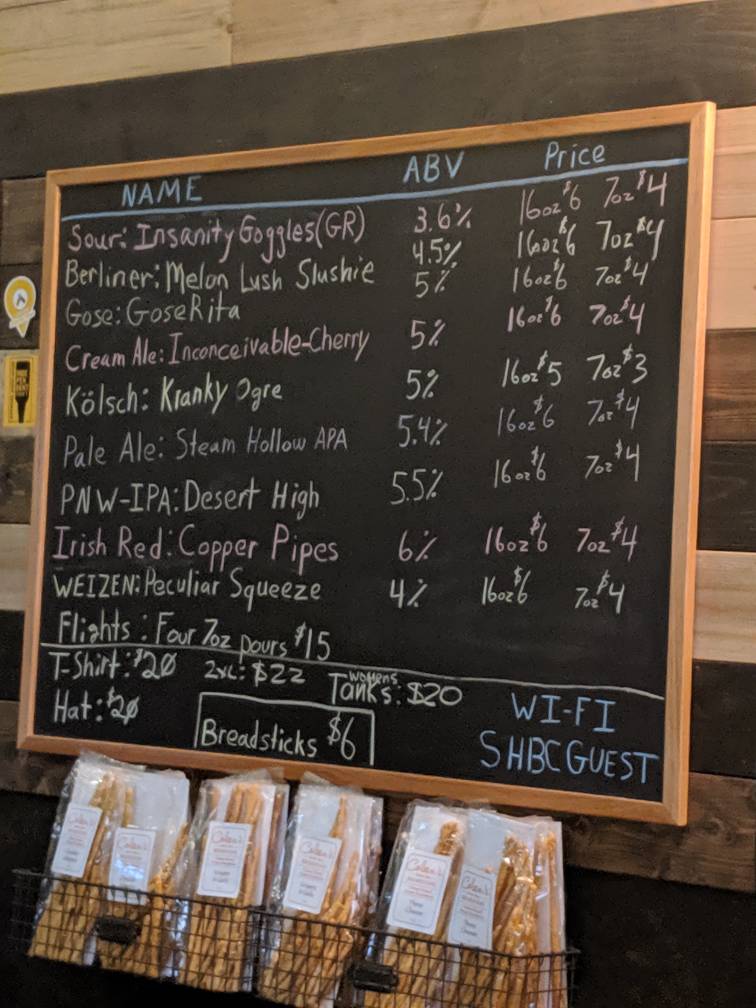 NAME ABV Price
Sour: Insanity Goggles(GR) 3.6% 16oz $6 7oz $4
Berliner: Melon Lush Slushie 4.5% 16oz $6 7oz $4
Gose: GoseRita 5% 16oz $6 7oz $4
Cream Ale: Inconceivable-Cherry 5% 16oz $6 7oz $4
Kölsch: Kranky Ogre 5% 16oz $5 7oz $3
Pale Ale: Steam Hollow APA 5.4% 16oz $6 7oz $4
PNW-IPA: Desert High 5.5% 16oz $6 7oz $4
Irish Red: Copper Pipes 6% 16oz $6 7oz $4
WEIZEN: Peculiar Squeeze 4% 16oz $6 7oz $4
Flights: Four 7oz pours $15
T-Shirt: $20 2XL: $22 Womens Tanks: $20
Hat: $20
Breadsticks $6
WI-FI
SHBCGUEST